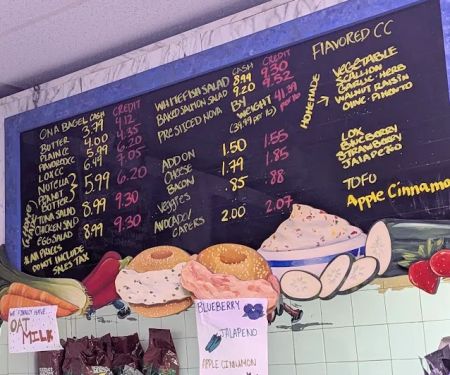 ON A BAGEL CASH CREDIT
BUTTER 3.79 4.12
PLAIN CC 4.00 4.35
FLAVORED CC 5.99 6.20
LOX CC 6.49 7.05
NUTELLA
PEANUT BUTTER 5.99 6.20
TUNA SALAD
CHICKEN SALAD 8.99 9.30
EGG SALAD 8.99 9.30
*ALL PRICES
DO NOT INCLUDE
SALES TAX
CASH CREDIT
WHITEFISH SALAD 8.99 9.30
BAKED SALMON SALAD 9.20 9.52
PRE SLICED NOVA BY WEIGHT
(39.99 per lb) 41.39 per lb
ADD ON
CHEESE 1.50 1.55
BACON 1.79 1.85
VEGGIES 85 88
AVOCADO/ CAPERS 2.00 2.07
FLAVORED CC
HOMEMADE
VEGETABLE
SCALLION
GARLIC HERB
WALNUT RAISIN
OLIVE PIMENTO
LOX
BLUEBERRY
STRAWBERRY
JALAPEÑO
TOFU
Apple Cinnamon
We Finally Have:
OAT MILK
BLUEBERRY
JALAPENO
APPLE CINNAMON